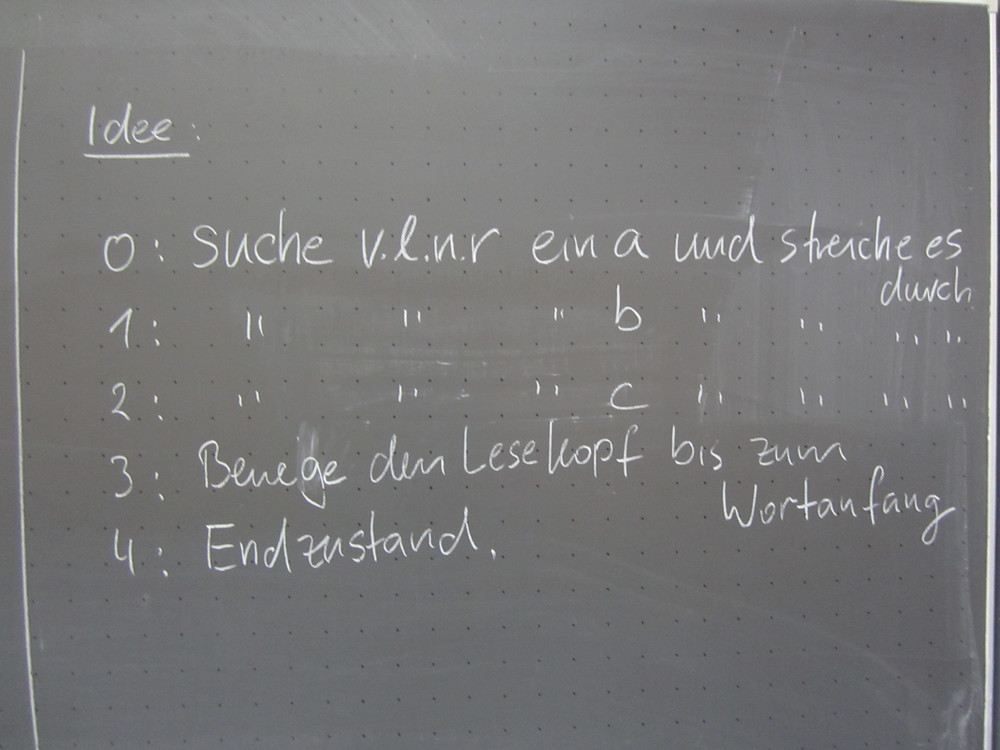 Idee:
0: suche v.l.n.r ein a und streiche es
durch
1: " " " b " " " "
2: " " " c " " " "
3: Bewege den Lesekopf bis zum
Wortanfang
4: Endzustand.